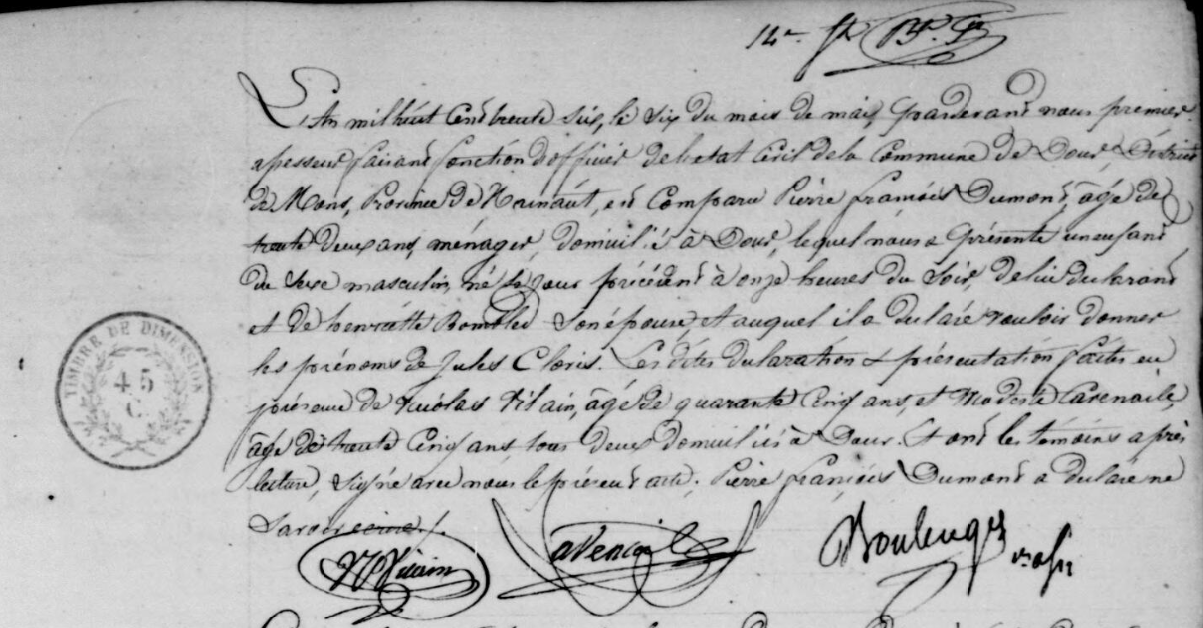 14e ft
L'An mil huit Cent trente Six, le Six du mois de mai, pardevant nous premier
assesseur faisant fonction d'officier de l'etat Civil de la Commune de Dour, District
de Mons, Province de Hainaut, est Comparu Pierre François Dumont, âgé de
trente deux ans, ménager, domicilié à Dour, lequel nous a présenté un enfant
du Sexe masculin, né le jour précédent à onze heures du Soir, de lui declarant
et de henriette Bombled Son épouse, et auquel il a declaré vouloir donner
les prénoms de Jules Cleris. Les dites declaration & présentation faites en
présence de Nicolas Vilain, âgé de quarante Cinq ans, et Modeste Cavenaile,
âgé de trente Cinq ans, tous deux domiciliés à Dour. Et ont les témoins après
lecture, Signé avec nous le présent acte; Pierre François Dumont a declaré ne
Savoir ecrire./.
TIMBRE DE DIMENSION
45
C.
N Vilain
Boulenger